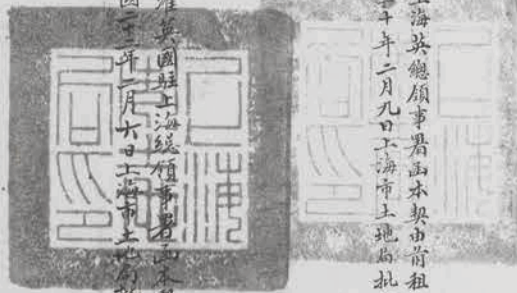 上海英總領事署函本契由前租
十年二月九日上海市土地局批
准英國駐上海總領事署函本
國二十二年二月六日上海市土地局